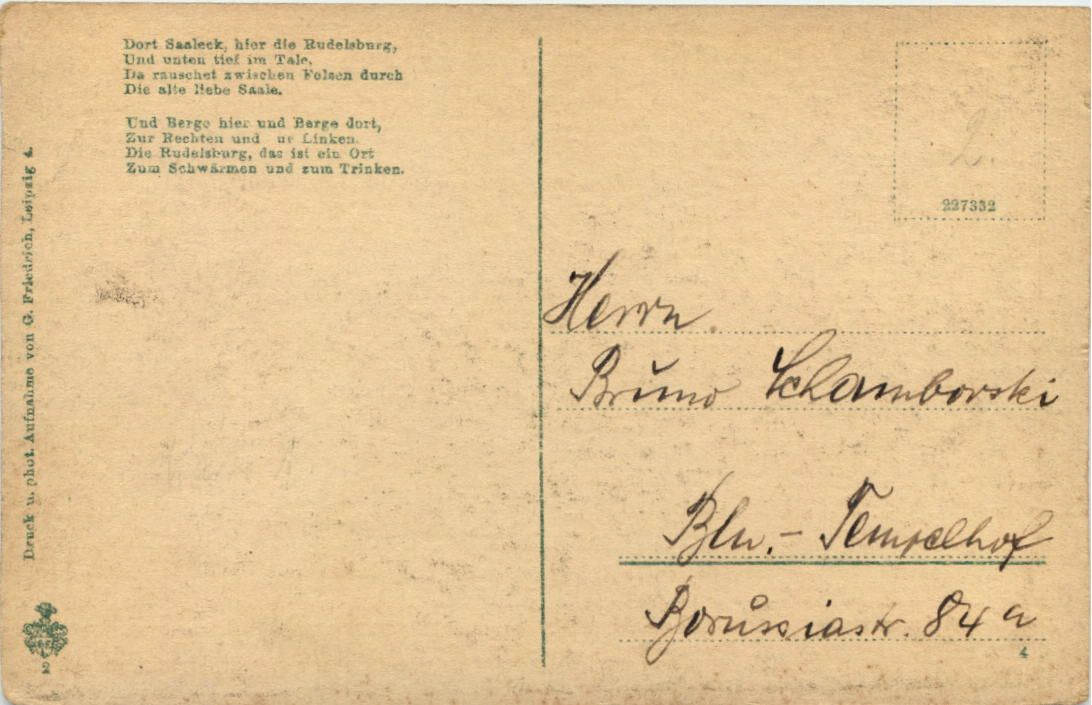 Dort Saaleck, hier die Rudelsburg,
Und unten tief im Tale,
Da rauschet zwischen Felsen durch
Die alte liebe Saale.
Und Berge hier und Berge dort,
Zur Rechten und ur Linken.
Die Rudelsburg, das ist ein Ort
Zum Schwärmen und zum Trinken.
Druck u. phot. Aufnahme von G. Friedrich, Leipzig 4.
2
2.
227332
Herrn
Bruno Schamborski
Bln.- Tempelhof
Borussiastr. 84 a
4